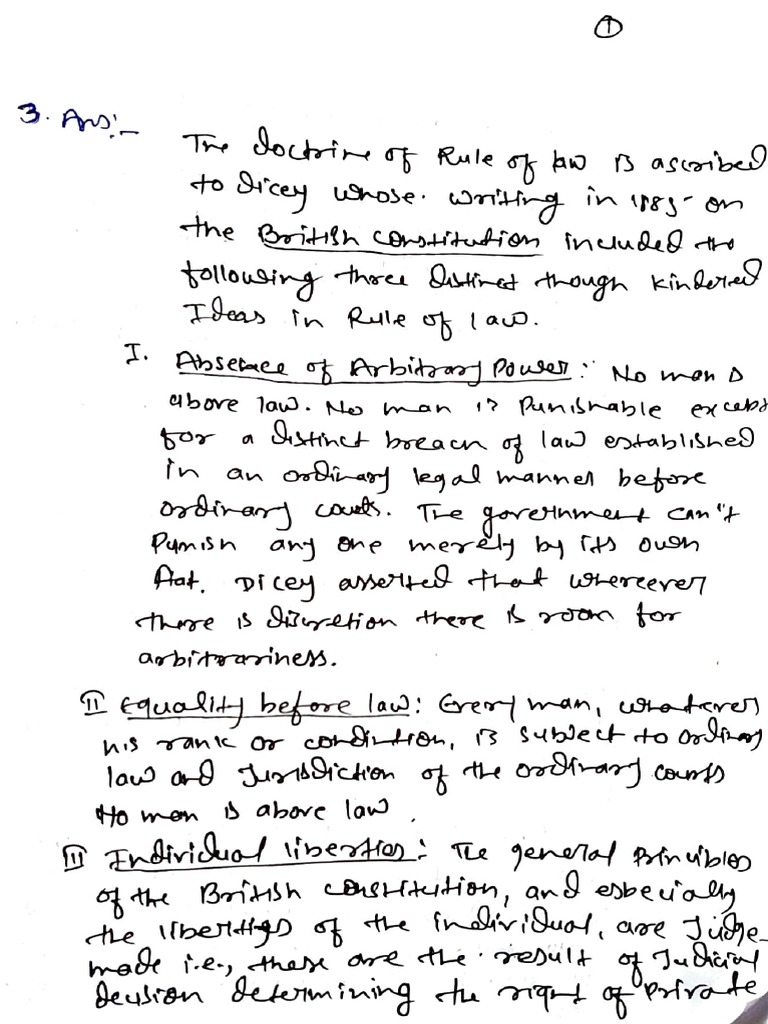 ①
3. Ans:-
The doctrine of Rule of law is ascribed
to Dicey whose. writing in 1885 on
the British constitution included the
following three distinct though kindered
Ideas in Rule of law.
I. Absence of Arbitrary Power: No man is
above law. No man is Punishable except
for a distinct breach of law established
in an ordinary legal manner before
ordinary courts. The government can't
Punish any one merely by its own
fiat. Dicey asserted that whereever
there is discretion there is room for
arbitrariness.
II Equality before law: Every man, whatever
his rank or condition, is subject to ordinary
law and Jurisdiction of the ordinary courts
No man is above law.
III Individual liberties: The general Principles
of the British constitution, and especially
the liberties of the individual, are Judge-
made i.e., these are the result of Judicial
decision determining the right of Private